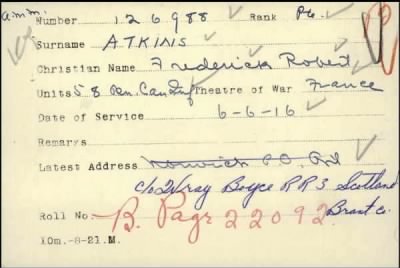 a.m.m.
Number 126988 Rank Pte.
Surname ATKINS
Christian Name Frederick Robert
Units 58 Bn. Can Inf Theatre of War France
Date of Service 6-6-16
Remarks
Latest Address Norwich P.O. Ont
c/o Wray Boyce R R 3 Scotland
Brant Co.
Roll No. B. Page 22092
10m.-8-21.M.